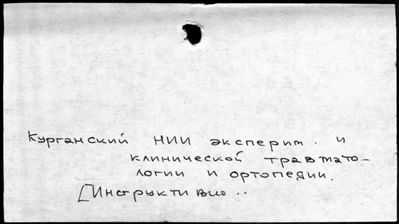 Курганский НИИ эксперим. и
клинической травмато-
логии и ортопедии.
[Инструктивно..